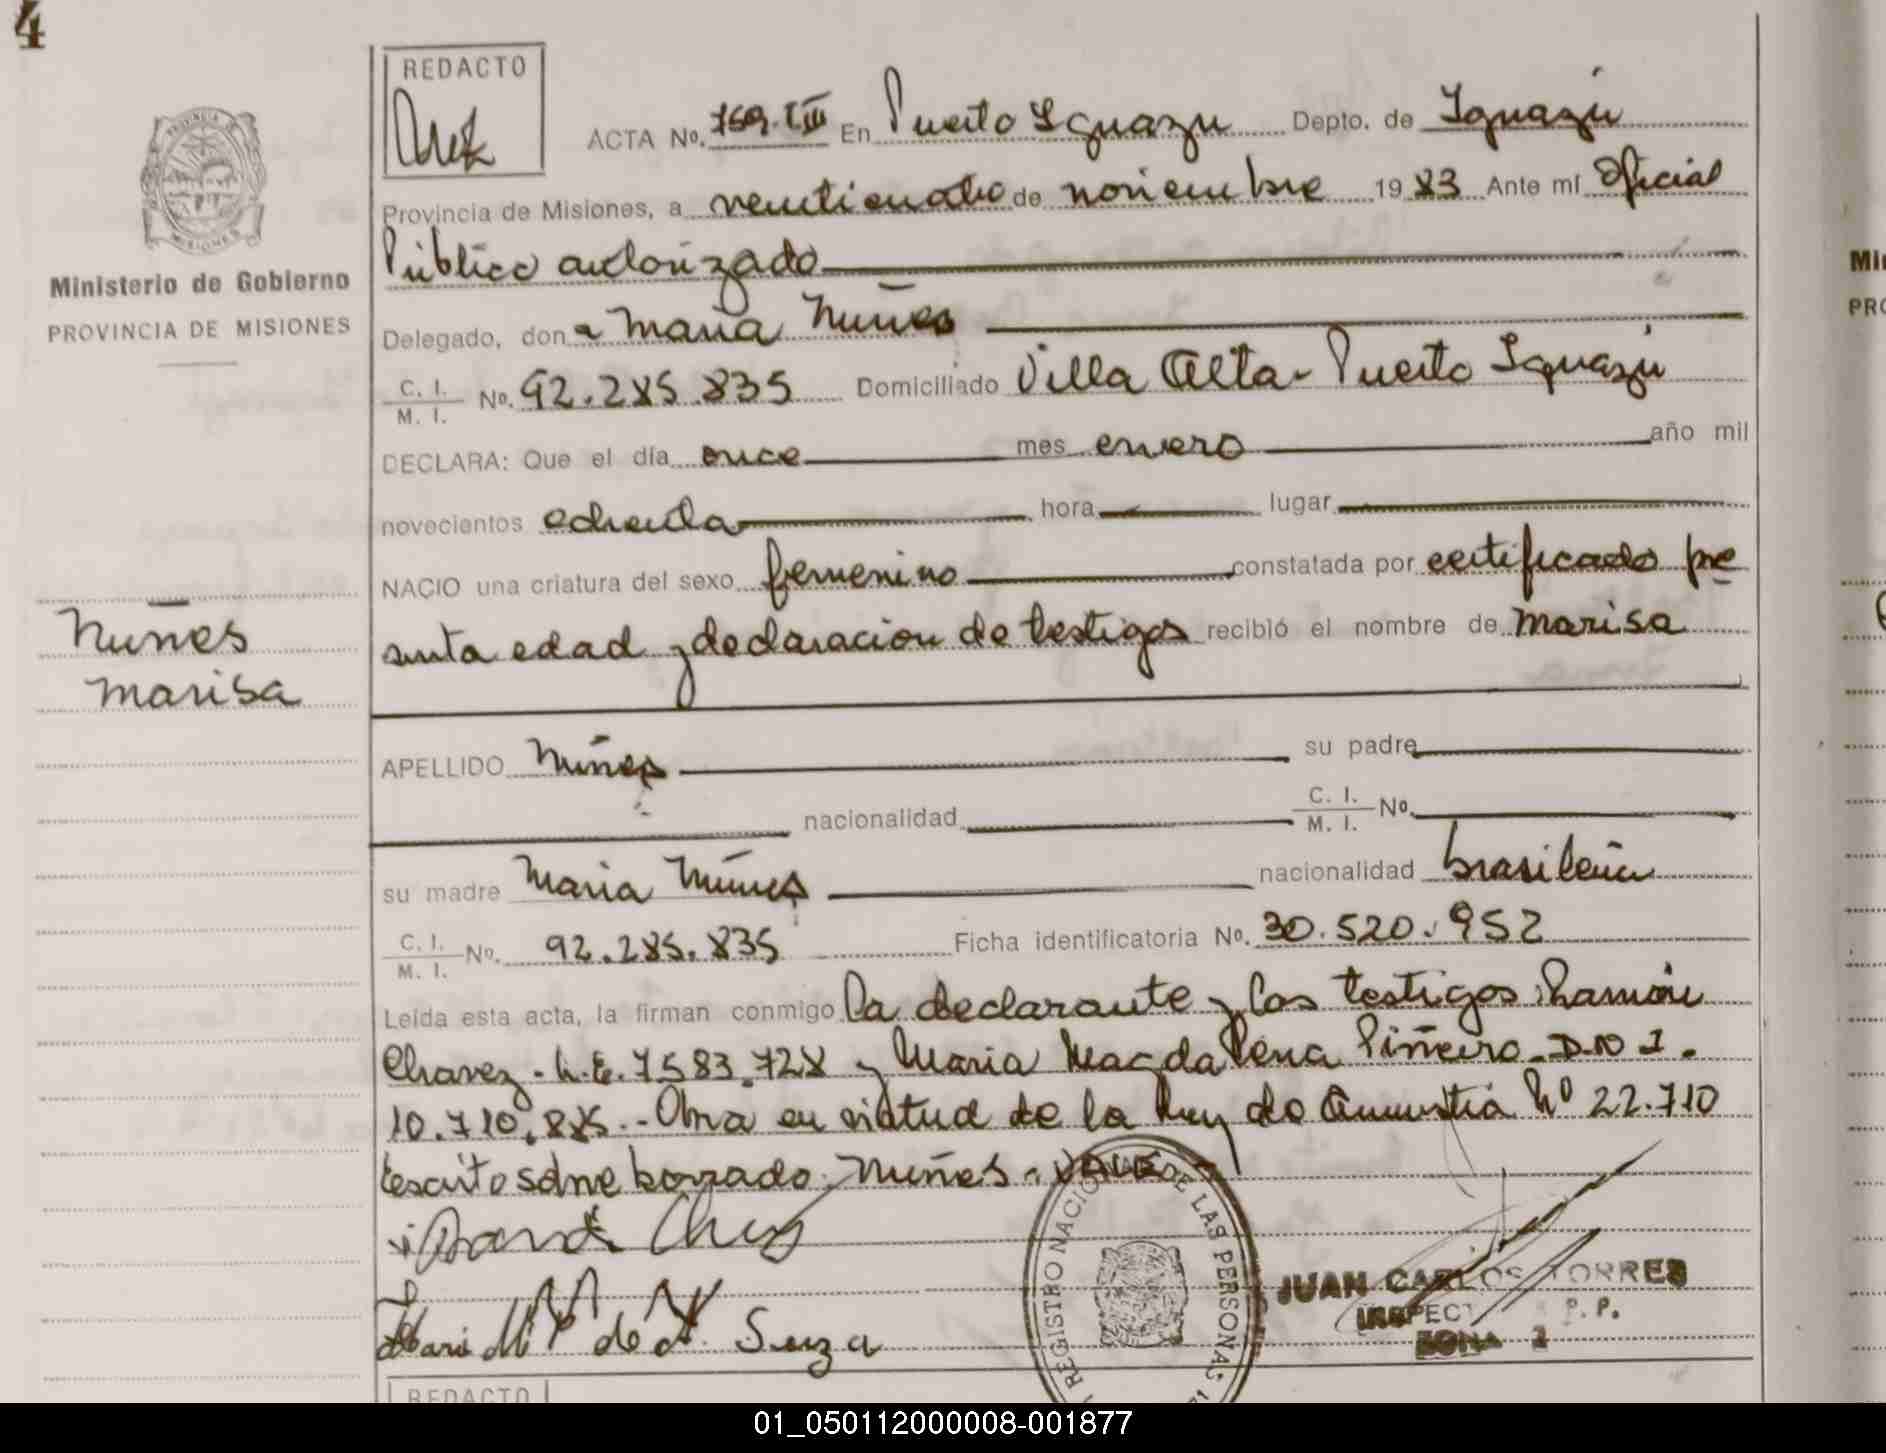 4
REDACTO
PROVINCIA DE MISIONES
Ministerio de Gobierno
PROVINCIA DE MISIONES
ACTA No. 759. TIII En Puerto Iguazu Depto. de Iguazú
Provincia de Misiones, a veinticuatro de noviembre 1983 Ante mí Oficial
Público autorizado
Delegado, don a Maria Nuñes
C. I. / M. I. No. 92.285.835 Domiciliado Villa Alta - Puerto Iguazú
DECLARA: Que el día once mes enero año mil
novecientos ochenta hora lugar
NACIO una criatura del sexo femenino constatada por certificado pre
sunta edad y declaracion de testigos recibió el nombre de Marisa
Nuñes
Marisa
APELLIDO Nuñes su padre
nacionalidad C. I. / M. I. No.
su madre Maria Nuñes nacionalidad brasileña
C. I. / M. I. No. 92.285.835 Ficha identificatoria No. 30.520.952
Leída esta acta, la firman conmigo la declarante y los testigos Ramón
Chavez - L.E. 7583.728 y Maria Magdalena Piñeiro - D.N I.
10.710.885.- Obra en virtud de la Ley de Amnistia Nº 22.710
Escrito sobre borrado: Nuñes - VALE
REGISTRO NACIO DE LAS PERSONAS
JUAN CARLOS TORRES
INSPECT R. P. P.
ZONA 2
de Suza
REDACTO
Mi
PRO
01_050112000008-001877